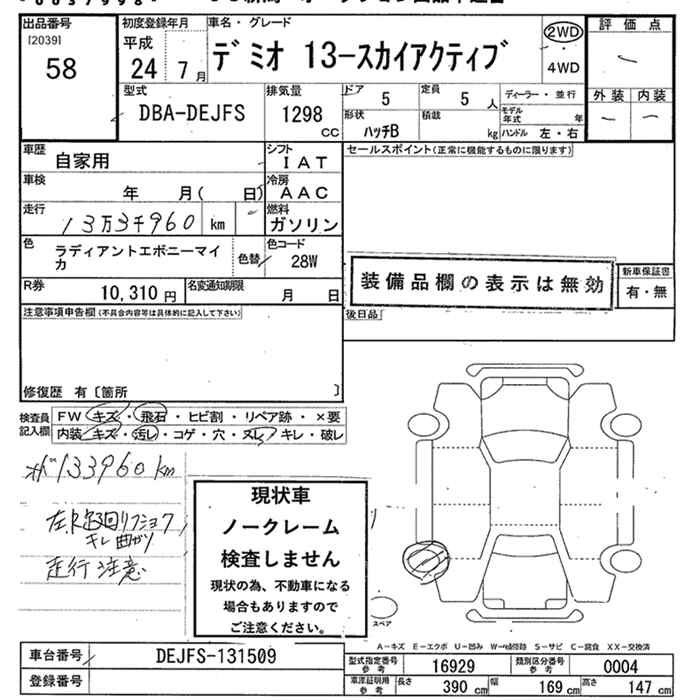 出品番号
[2039]
58
初度登録年月
平成
24年 7月
車名・グレード
デミオ 13-スカイアクティブ
2WD
・
4WD
評価点
外装 内装
型式
DBA-DEJFS
排気量
1298
CC
ドア
5
定員
5 人
形状
ハッチB
積載
kg
ディーラー・並行
モデル年式 年
ハンドル 左・右
車歴
自家用
シフト
IAT
車検
年 月( 日)
冷房
AAC
走行
13万3千960 km
燃料
ガソリン
色
ラディアントエボニーマイカ
色替
色コード
28W
R券
10,310 円
名変通知期限
月 日
セールスポイント(正常に機能するものに限ります)
装備品欄の表示は無効
新車保証書
有・無
後日品
注意事項申告欄(不具合内容等は具体的に記入して下さい)
修復歴 有〔箇所 〕
検査員記入欄
FW キズ・飛石・ヒビ割・リペア跡・×要
内装 キズ・汚レ・コゲ・穴・ヌレ・キレ・破レ
133960km
キレ 曲がり
走行注意
現状車
ノークレーム
検査しません
現状の為、不動車になる
場合もありますので
ご注意ください。
スペア
A-キズ E-エクボ U-凹み W-補修跡 S-サビ C-腐食 XX-交換済
車台番号 DEJFS-131509
登録番号
型式指定番号 参考 16929
類別区分番号 参考 0004
車庫証明用 参考 長さ 390 cm 幅 169 cm 高さ 147 cm